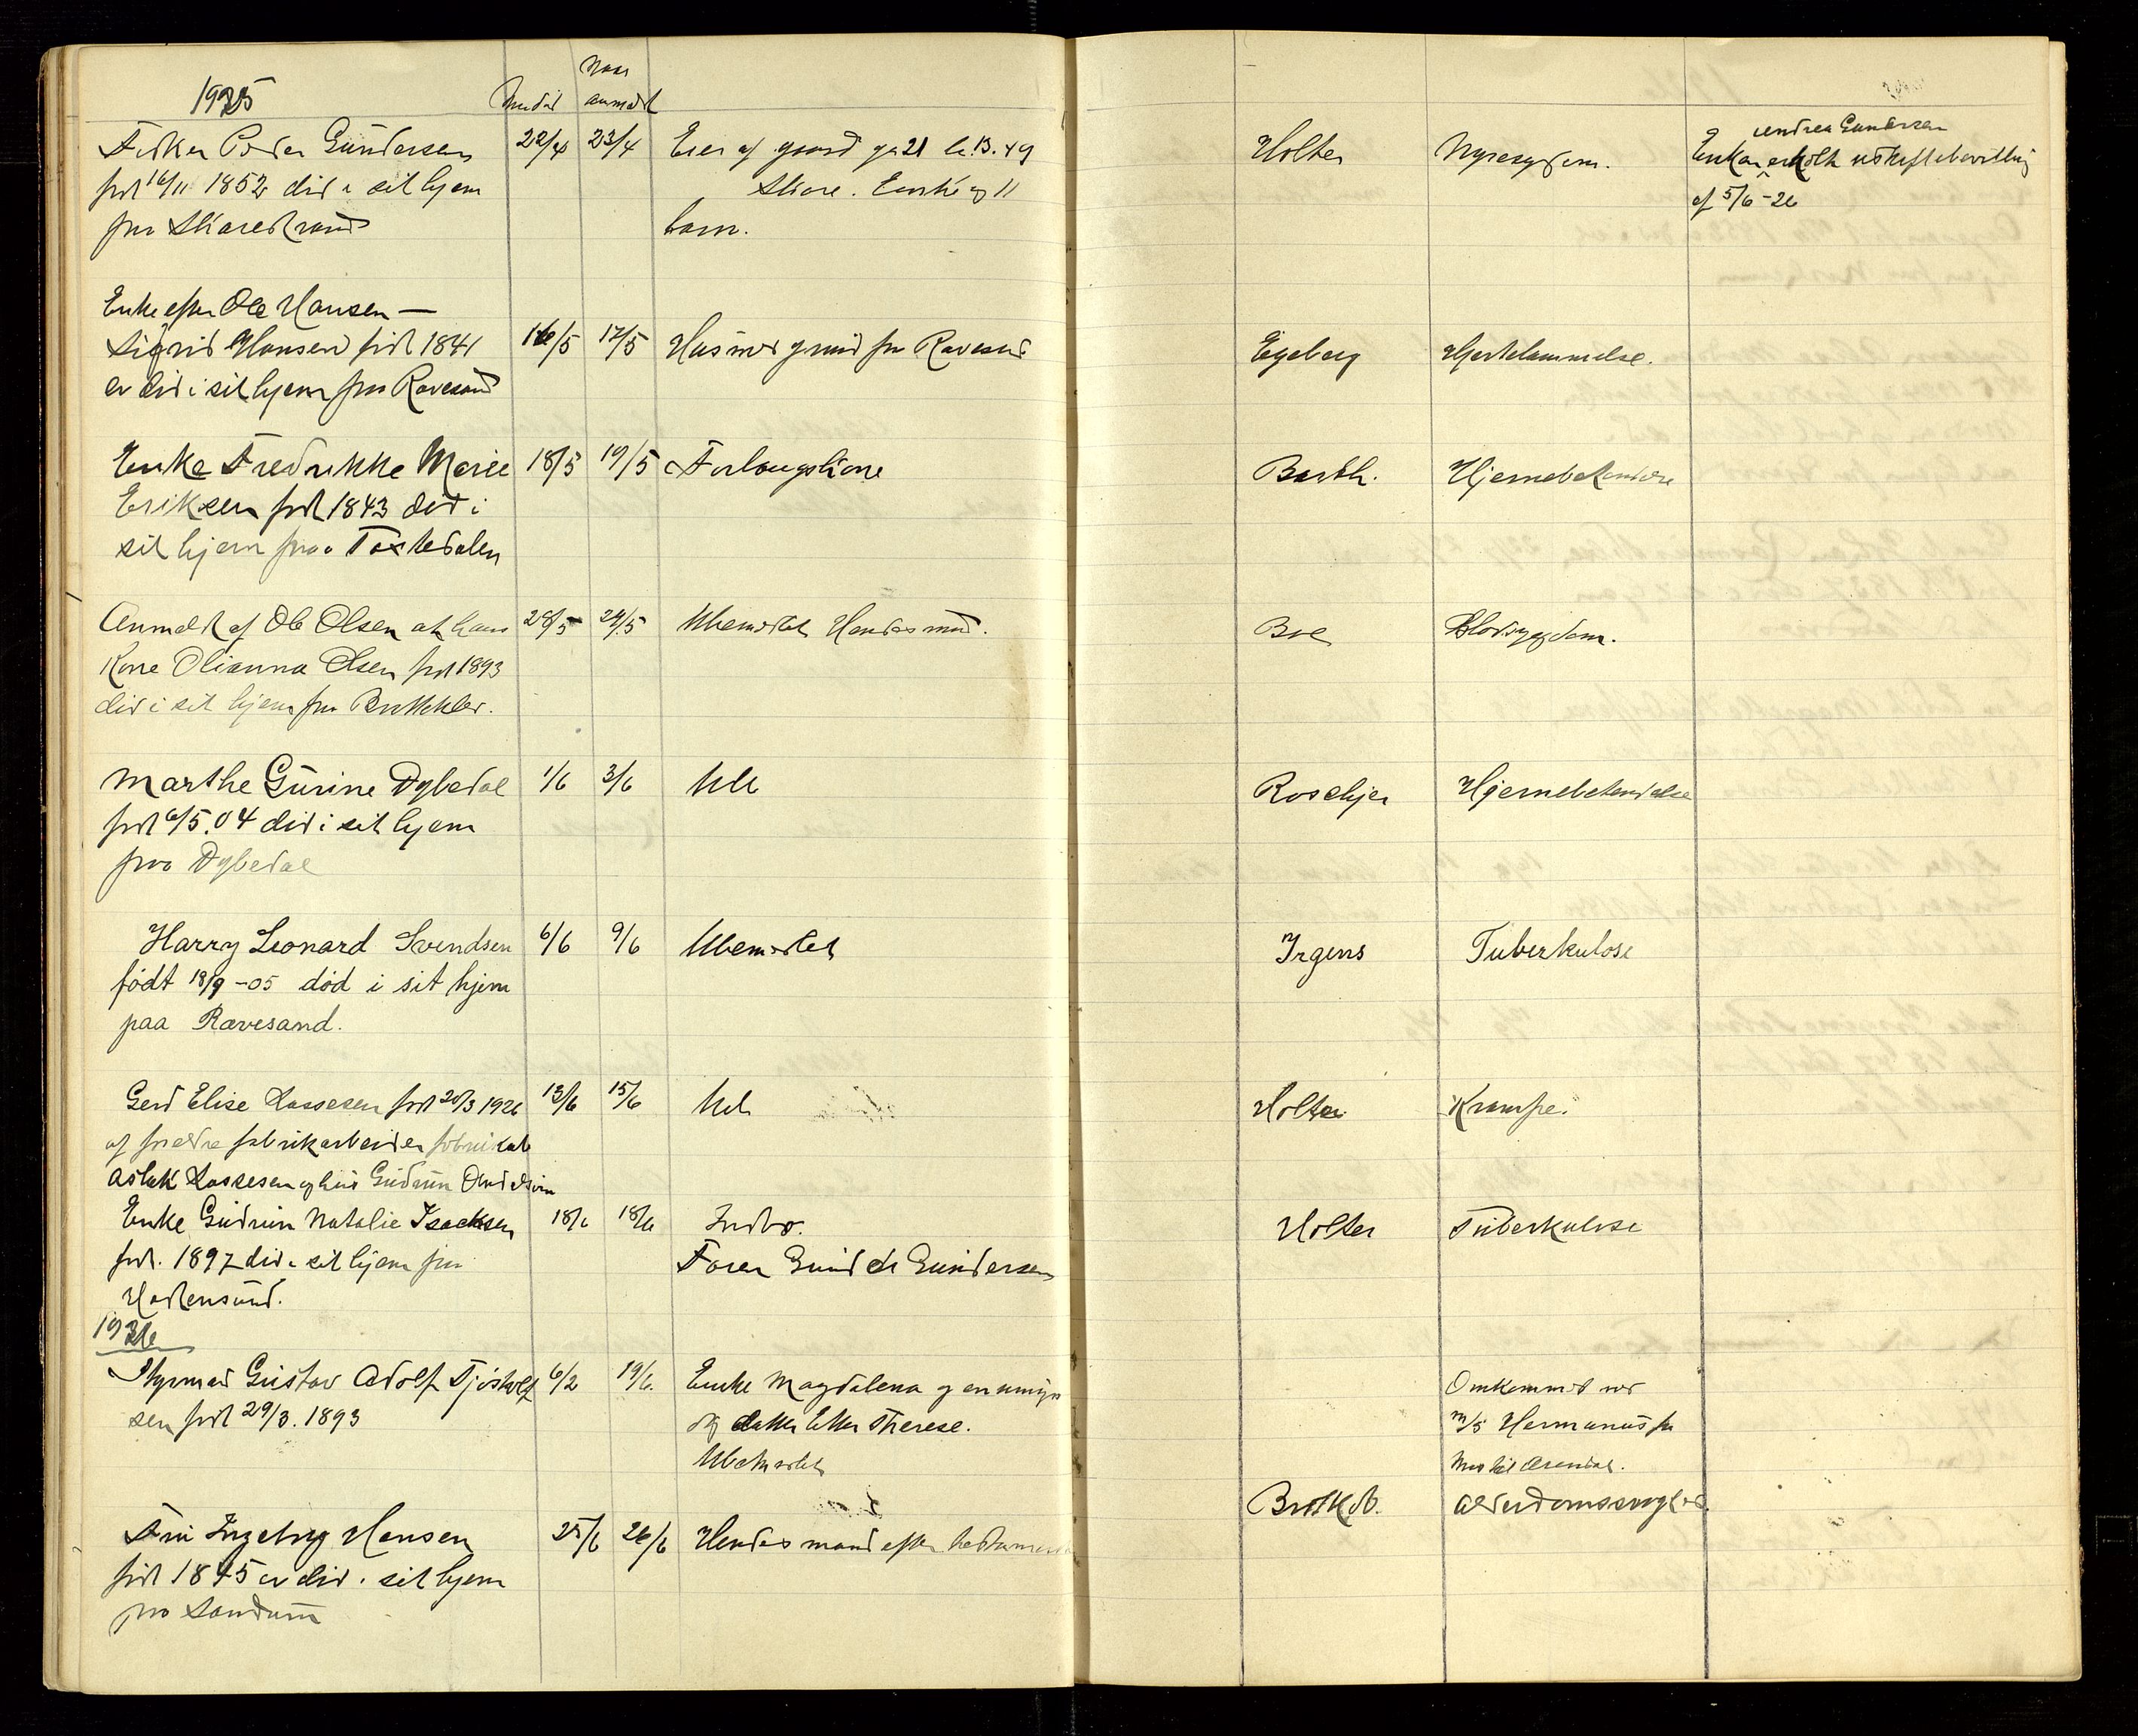 1925
Naar
død anmeldt
Fisker Peder Gundersen 22/4 23/4 Eier af gaard gn 21 br. 13. 49 Holter Nyresygdom. Enken erholdt uskiftebevilling
Andrea Gundersen
født 16/11 1852 død i sit hjem Skare. Enke og 11 af 5/6 - 26
paa barn.
Enke efter Ole Hansen —
Sigrid Hansen født 1841 16/5 17/5 Hus med grund paa Ravesand Egeberg Hjertelammelse.
er død i sit hjem paa Ravesand
Enke Fredrikke Marie 18/5 19/5 Barth. Hjernebetendelse
Eriksen født 1843 død i
sit hjem paa
Anmeldt af Ole Olsen at hans 28/5 29/5 Ubemidlet Hendes mand. Boe Blodsygdom.
Kone Olianna Olsen født 1893
død i sit hjem paa
Marthe Gurine Dybedal 1/6 3/6 Ub Rosekjer Hjernebetendelse
født 6/5.04 død i sit hjem
paa Dybedal
Harry Leonard Svendsen 6/6 9/6 Ubemidlet Irgens Tuberkulose
født 18/9 -05 død i sit hjem
paa Rævesand.
Gerd Elise Lassesen født 20/3 1926 13/6 15/6 Ub Holter Krampe.
af forældre fabrikarbeider
Aslak Lassesen og hus Gudrun
Enke Gudrun Natalie Isachsen 18/6 18/6 Indbo. Holter Tuberkulose
født. 1897 død i sit hjem paa Faren Gundersen
1926
Styrmand Gustav Adolf Tjøstolf 6/2 19/6. Enke Magdalena og en umyn Omkommet ved
sen født 29/3. 1893 dig datter Ester Therese. m/s Hermanus fra
Ubemidlet til Arendal.
Fru Ingeborg Hansen 25/6 26/6 Hendes mand efter Alderdomssvaghed.
født 1845 er død i sit hjem
paa Sandum